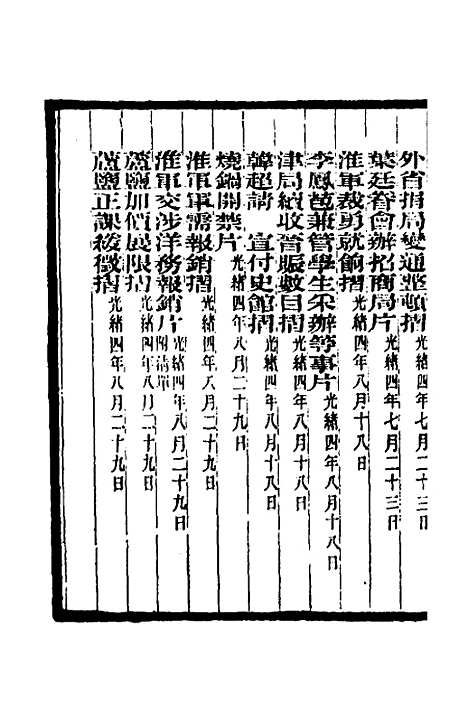 外省捐局變通整頓摺光緒四年七月二十三日
葉廷眷會辦招商局片光緒四年七月二十三日
淮軍裁勇就餉摺光緒四年八月十八日
李鳳苞兼管學生采辦等事片光緒四年八月十八日
津局續收晉賑數目摺光緒四年八月十八日
韓超請 宣付史館摺光緒四年八月十八日
燒鍋開禁片光緒四年八月二十九日
淮軍軍需報銷摺光緒四年八月二十九日
淮軍交涉洋務報銷片附清單光緒四年八月二十九日
蘆鹽加價展限摺光緒四年八月二十九日
蘆鹽正課緩徵摺光緒四年八月二十九日